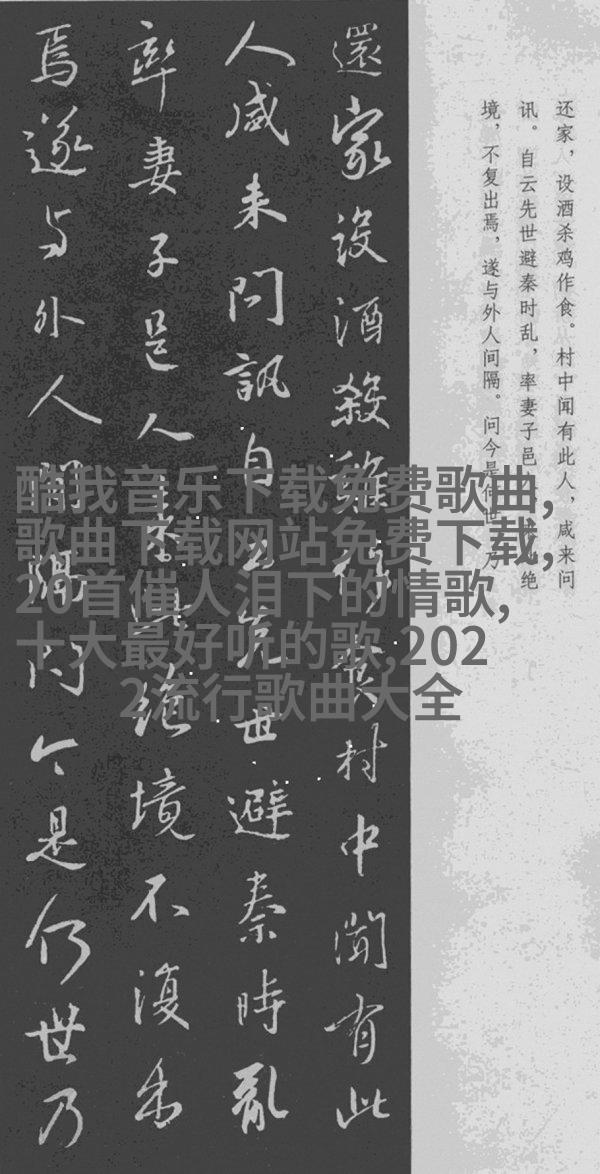 还家，设酒杀鸡作食。村中闻有此人，咸来问
讯。自云先世避秦时乱，率妻子邑绝
境，不复出焉，遂与外人间隔。问今是何世，乃
還家設酒殺雞作食村中聞有此
人咸来問訊自云先世避秦時亂
率妻子邑人来此絶境不復出
焉遂与外人間隔問今是何世乃
酷我音乐下载免费歌曲,
歌曲下载网站免费下载,
20首催人泪下的情歌,
十大最好听的歌,202
2流行歌曲大全